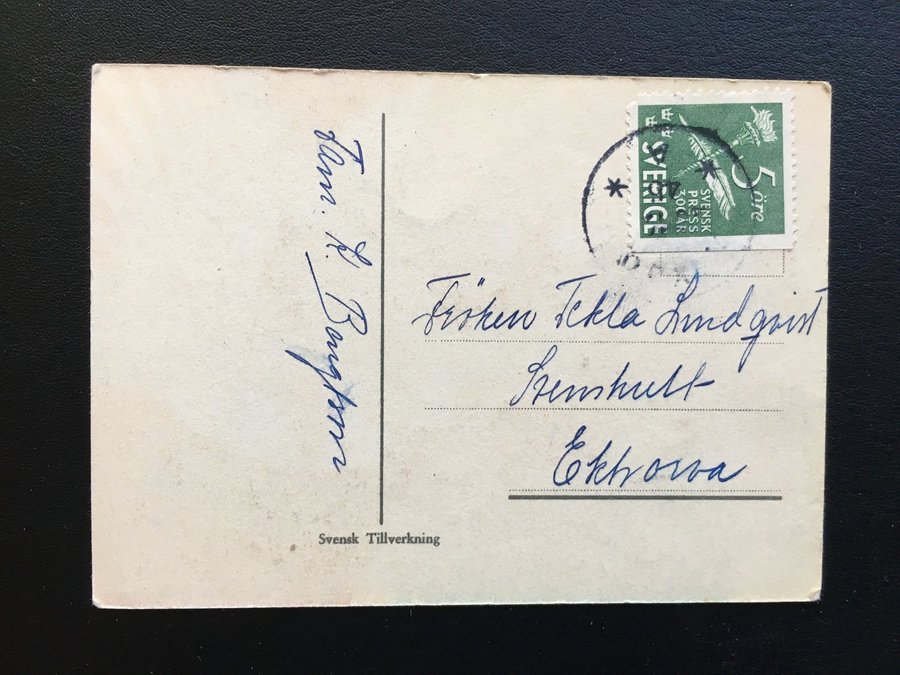 5 öre
SVENSK
PRESS
300 ÅR
SVERIGE
Fröken Tekla Lundqvist
Stenshult
Ektorna
Fam. K. Bengtsson
Svensk Tillverkning